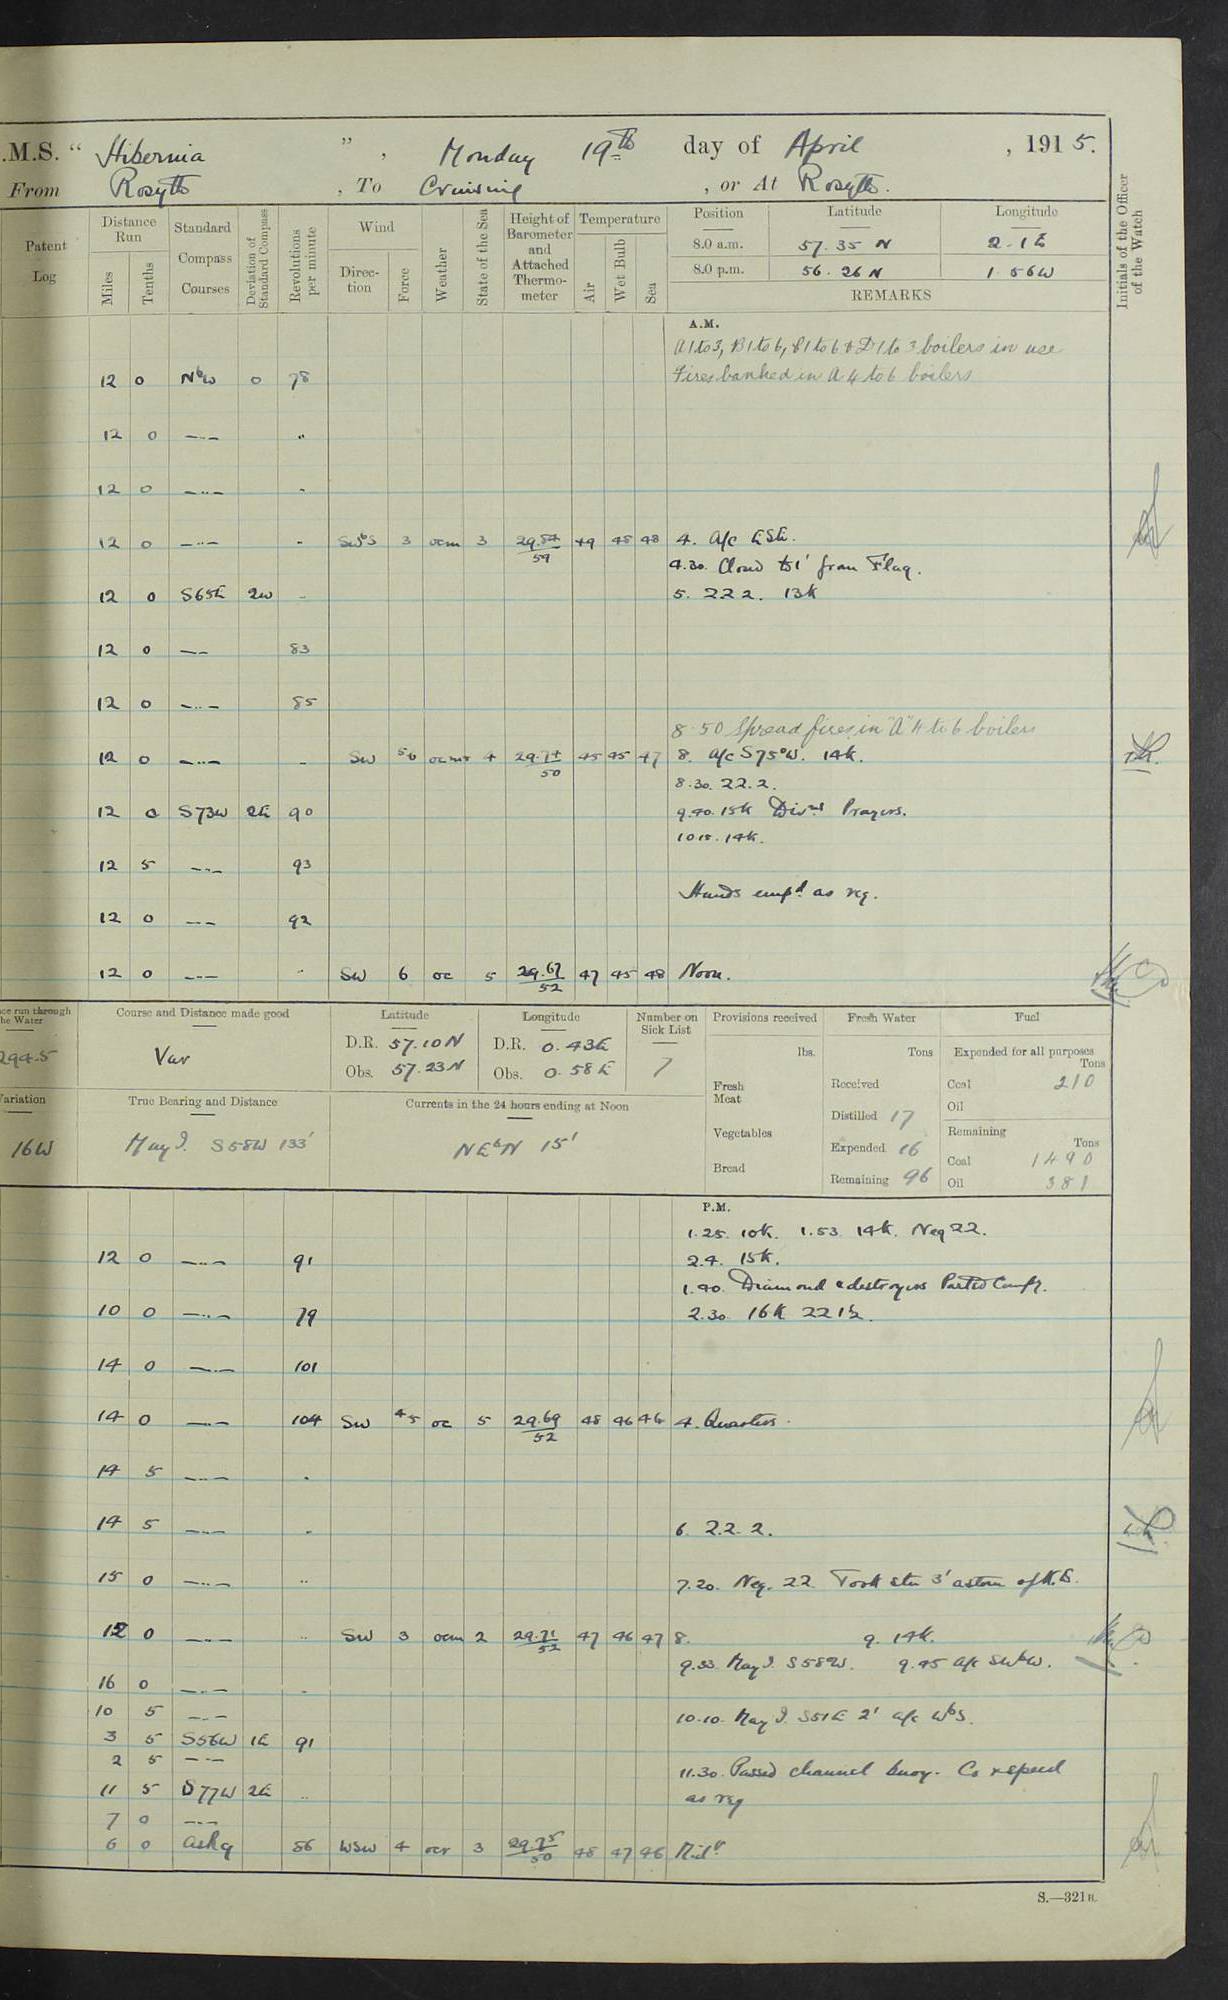 .M.S. “ Hibernia ” , Monday 19th day of April , 1915.
From Rosyth , To Cruising , or At Rosyth.
Patent Log
Distance Run
Miles Tenths
Standard Compass Courses
Deviation of Standard Compass
Revolutions per minute
Wind
Direction Force
Weather
State of the Sea
Height of Barometer and Attached Thermometer
Temperature
Air Wet Bulb Sea
Position Latitude Longitude
8.0 a.m. 57. 35 N 2. 1 E
8.0 p.m. 56. 26 N 1 56 W
REMARKS
Initials of the Officer of the Watch
A.M.
A 1 to 3, B 1 to 6, C 1 to 6 & D 1 to 3 boilers in use
12 0 NbW 0 78 Fires banked in A 4 to 6 boilers
12 0 —..— "
12 0 —..— "
12 0 —..— " SWbS 3 ocm 3 29.54 59 49 48 48 4. A/c ESE.
4.30. Closed to 1' from Flag.
12 0 S65E 2W .. 5. 222. 13K
12 0 —..— 83
12 0 —..— 85
8.50 Spread fires in "A" 4 to 6 boilers
12 0 —..— .. SW 56 4 29.74 50 45 45 47 8. A/c S75°W. 14K.
8.30. 22.2.
12 0 S73W 2E 90 9.40. 15K Divns Prayers.
10.15. 14K.
12 5 —..— 93
Hands empd. as req.
12 0 —..— 92
12 0 —..— .. SW 6 oc 5 29.67 52 47 45 48 Noon.
ce run through the Water
294.5
Course and Distance made good
Var
Latitude
D.R. 57.10 N
Obs. 57.23 N
Longitude
D.R. 0.43 E
Obs. 0.58 E
Number on Sick List
7
Provisions received
lbs.
Fresh Meat
Vegetables
Bread
Fresh Water
Tons
Received
Distilled 17
Expended 16
Remaining 96
Fuel
Expended for all purposes
Tons
Coal 210
Oil
Remaining
Tons
Coal 1490
Oil 381
Variation
16W
True Bearing and Distance
May I. S58W 133'
Currents in the 24 hours ending at Noon
NEbN 15'
P.M.
1.25. 10K. 1.53. 14K. Neg 22.
12 0 —..— 91 2.4. 15K.
1.40. Diamond & destroyers Parted Compy.
10 0 —..— 79 2.30. 16K 22 1½.
14 0 —..— 101
14 0 —..— 104 SW 45 oc 5 29.69 52 48 46 46 4. Quarters.
14 5 —..— "
14 5 —..— " 6. 22. 2.
15 0 —..— " 7.20. Neg. 22. Took stn 3' astern of K.E.
12 0 —..— " SW 3 ocm 2 29.71 52 47 46 47 8. 9. 14K.
9.33. May I. S58W. 9.45 A/c SWbW.
16 0 —..— "
10 5 —..— 10.10. May I. S51E 2' A/c WbS.
3 5 S56W 1E 91
2 5 —..— 11.30. Passed channel buoy. Co & speed
11 5 S77W 2E " as req
7 0 —..—
6 0 as req 56 WSW 4 ocr 3 29.75 50 48 47 46 Midt
S.—321B.